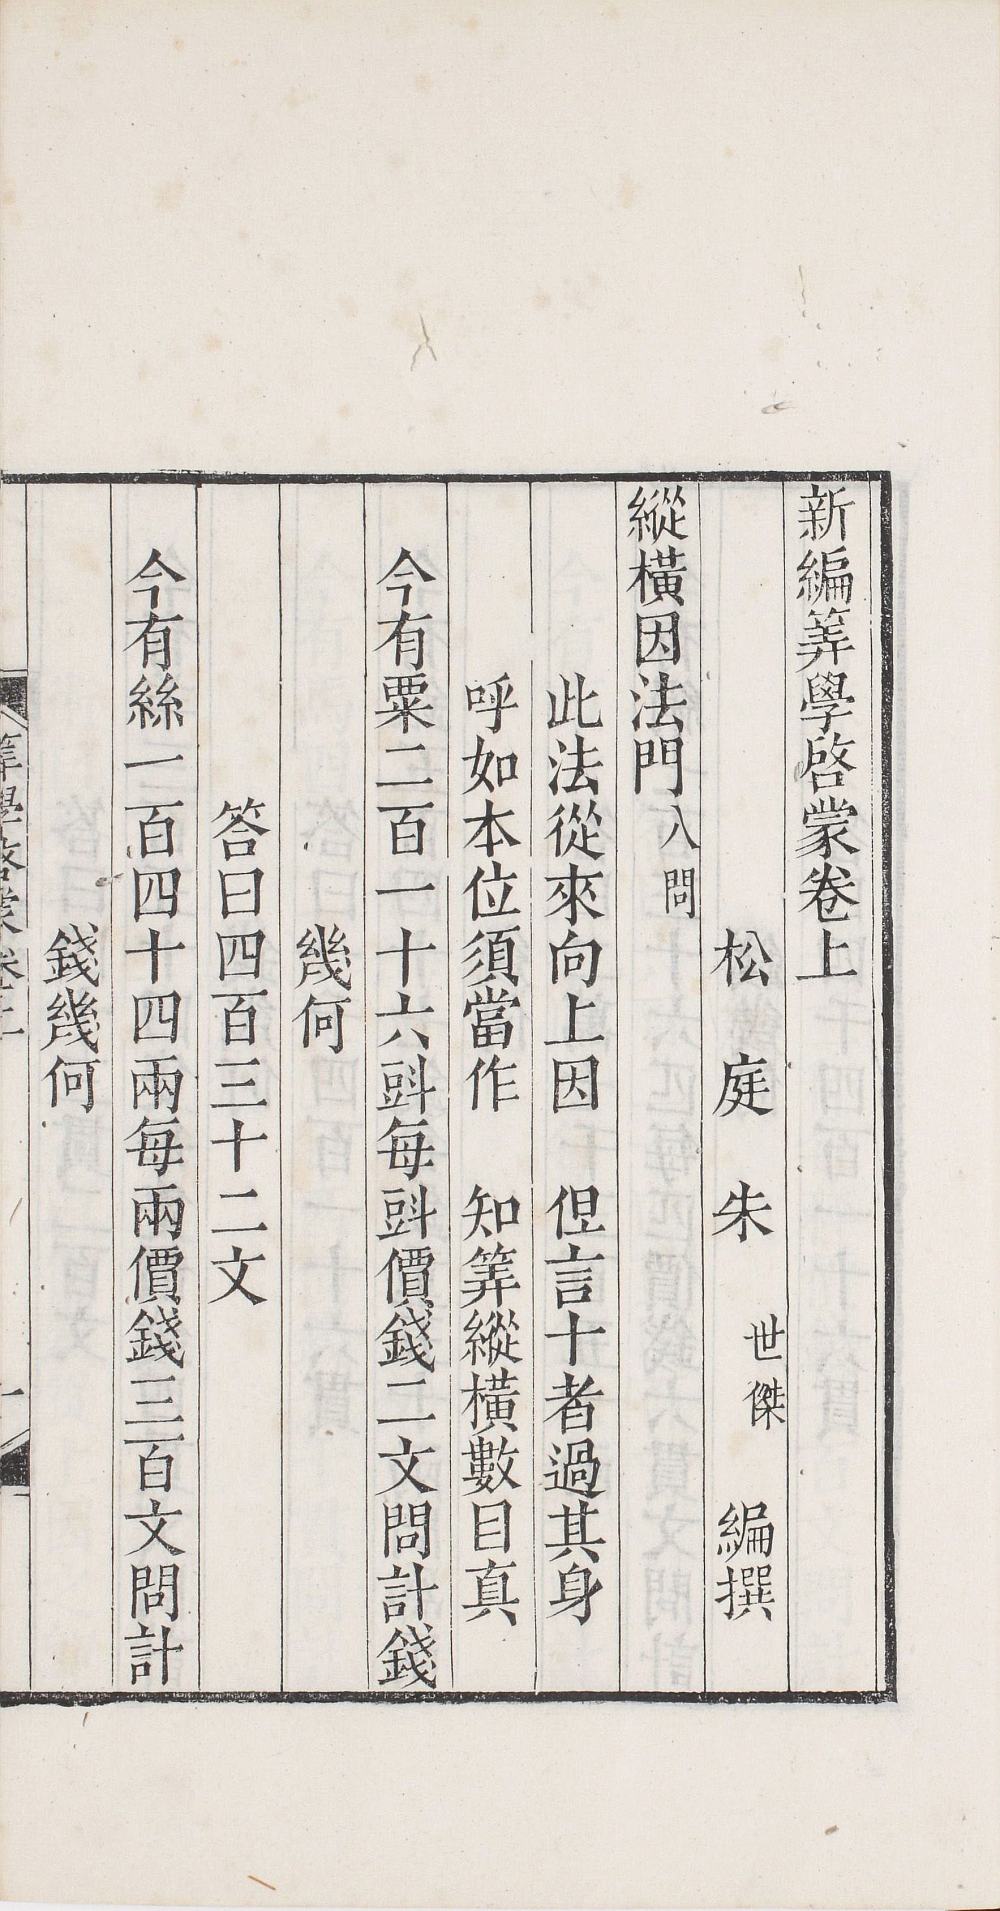 新編筭學啓蒙卷上
松庭朱世傑編撰
縱橫因法門八問
此法從來向上因　但言十者過其身
呼如本位須當作　知筭縱橫數目真
今有粟二百一十六㪷每㪷價錢二文問計錢
幾何
答曰四百三十二文
今有絲一百四十四兩每兩價錢三百文問計
錢幾何
筭學啓蒙卷上
一